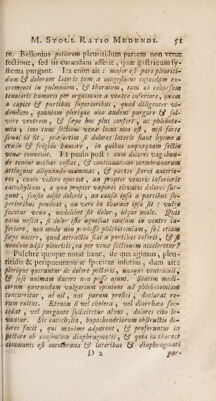 M. STOLL RATIO MEDENDI. 51
re. Ballonius potiorem pleuritidum partem non venæ
sectione, sed iis curandam asserit, quæ gastricum sy-
stema purgant. Ita enim ait: major est pars pleuriti-
dum & dolorum lateris cum a congestione cujusdam ex-
crementi in pulmonem, & thoracem, tum ob relusum
tenuioris humoris per organorum a ventre inferiore, unum
a capite & partibus superioribus, quod diligenter vi-
dendum, quoniam plerique non audent purgare & sol-
vere ventrem, & sæpe hoc plus confert, ac phleboto-
mia; imo tunc sectioni venæ locus non est, nisi foris
sensu id sit, præsertim si dolores lateris fiant hyeme a
crudo & frigido humore, in quibus nequaquam sectio
venæ convenit. Et paulo post: cum dolores vagabun-
de teneant nothas costas, & continuatione membranarum
attingant aliquando mammas, & partes sterni anterio-
res, cause videre oportet, an propter ventris inferioris
cacochyliam, a qua propter vapores elevatos dolores sur-
gunt, sensio adsit doloris, an causa ipsa a partibus su-
perioribus pendeat, an vero in thorace ipsa sit: vulgo
secatur vena, mobiliter fit dolor, ibque male. Quis
enim nescit, si dolor fiat ægrotias causam in ventre in-
feriore, non modo non prodesse phlebotomiam, sed etiam
sæpe nocere, quod attractio fiat a partibus inferis, &
nondum adsit pleuritis, ea per venæ sectionem acceleretur?
Pulchre quoque notat hanc, de qua agimus, pleu-
ritidis & peripneumoniæ speciem inferius, dum ait:
plerique queruntur de dolore pectoris, nusquam ventriculi,
& sese animam ducere non posse ajunt. Statim medi-
corum quorumdam vulgarium opinione ad phlebotomiam
concurritur, at nil, aut parum prosit, declarat re-
rum exitus. Etenim si vel cholera, vel diarrhæa suc-
cedat, vel purgante sollicitetur alvus, dolores cito le-
vantur. Sic cacochylia, hypochondriorum obstructio do-
lores facit, qui maxime adparent, & proferuntur in
pectore ob consensum diaphragmatis, & quia in thorace
communis est membrana & lateribus & diaphragmati
D 2
par-